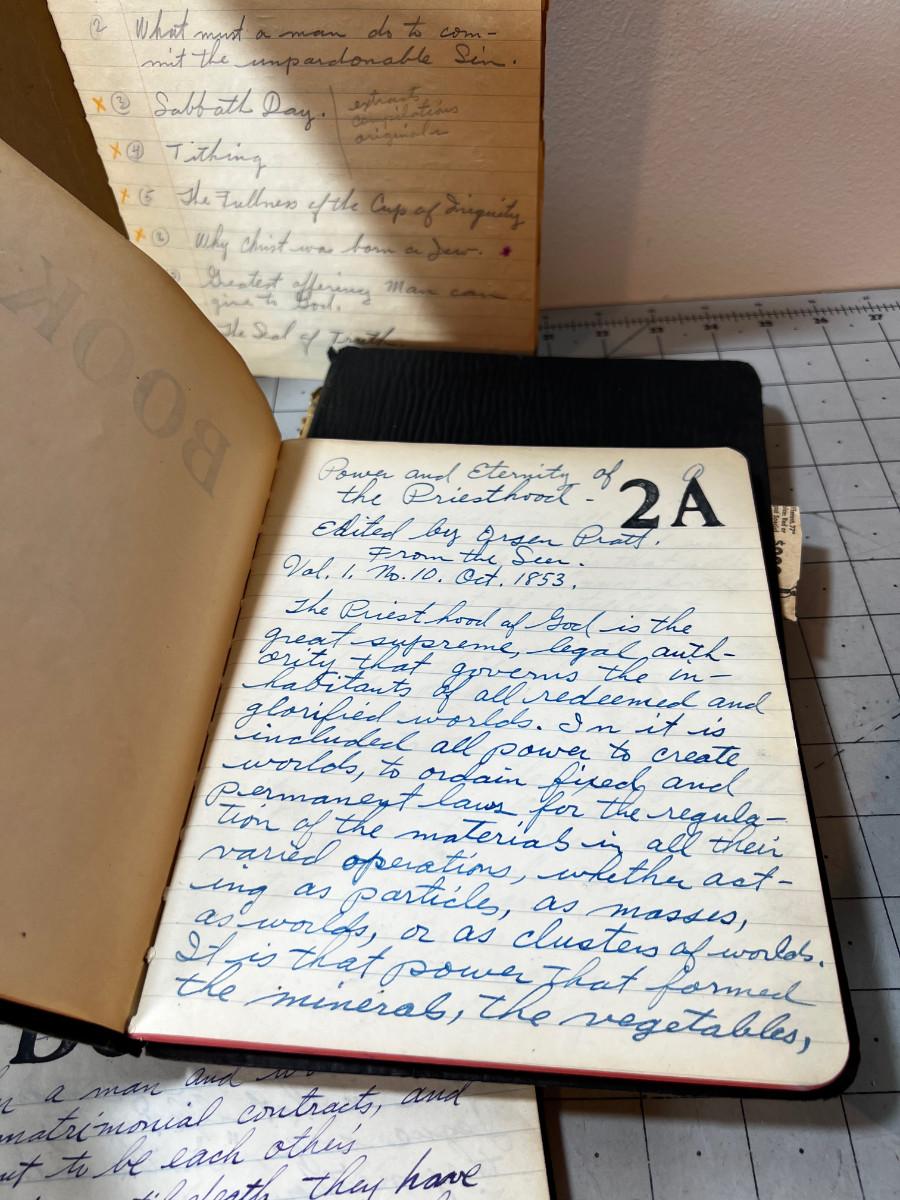 ② What must a man do to com-
mit the unpardonable Sin.
x ③ Sabbath Day.
extracts
compilations
originals
x ④ Tithing
x ⑤ The Fullness of the Cup of Iniquity
x ⑥ Why Christ was born a Jew.
Greatest offering Man can
give to God.
The Seal of Truth
BOOK
Power and Eternity of
the Priesthood -
2A
Edited by Orsen Pratt.
From the Seer.
Vol. 1. No. 10. Oct. 1853.
The Priesthood of God is the
great supreme, legal auth-
ority that governs the in-
habitants of all redeemed and
glorified worlds. In it is
included all power to create
worlds, to ordain fixed and
permanent laws for the regula-
tion of the materials in all their
varied operations, whether act-
ing as particles, as masses,
as worlds, or as clusters of worlds.
It is that power that formed
the minerals, the vegetables,
a man and
matrimonial contracts, and
to be each other's
death, they have